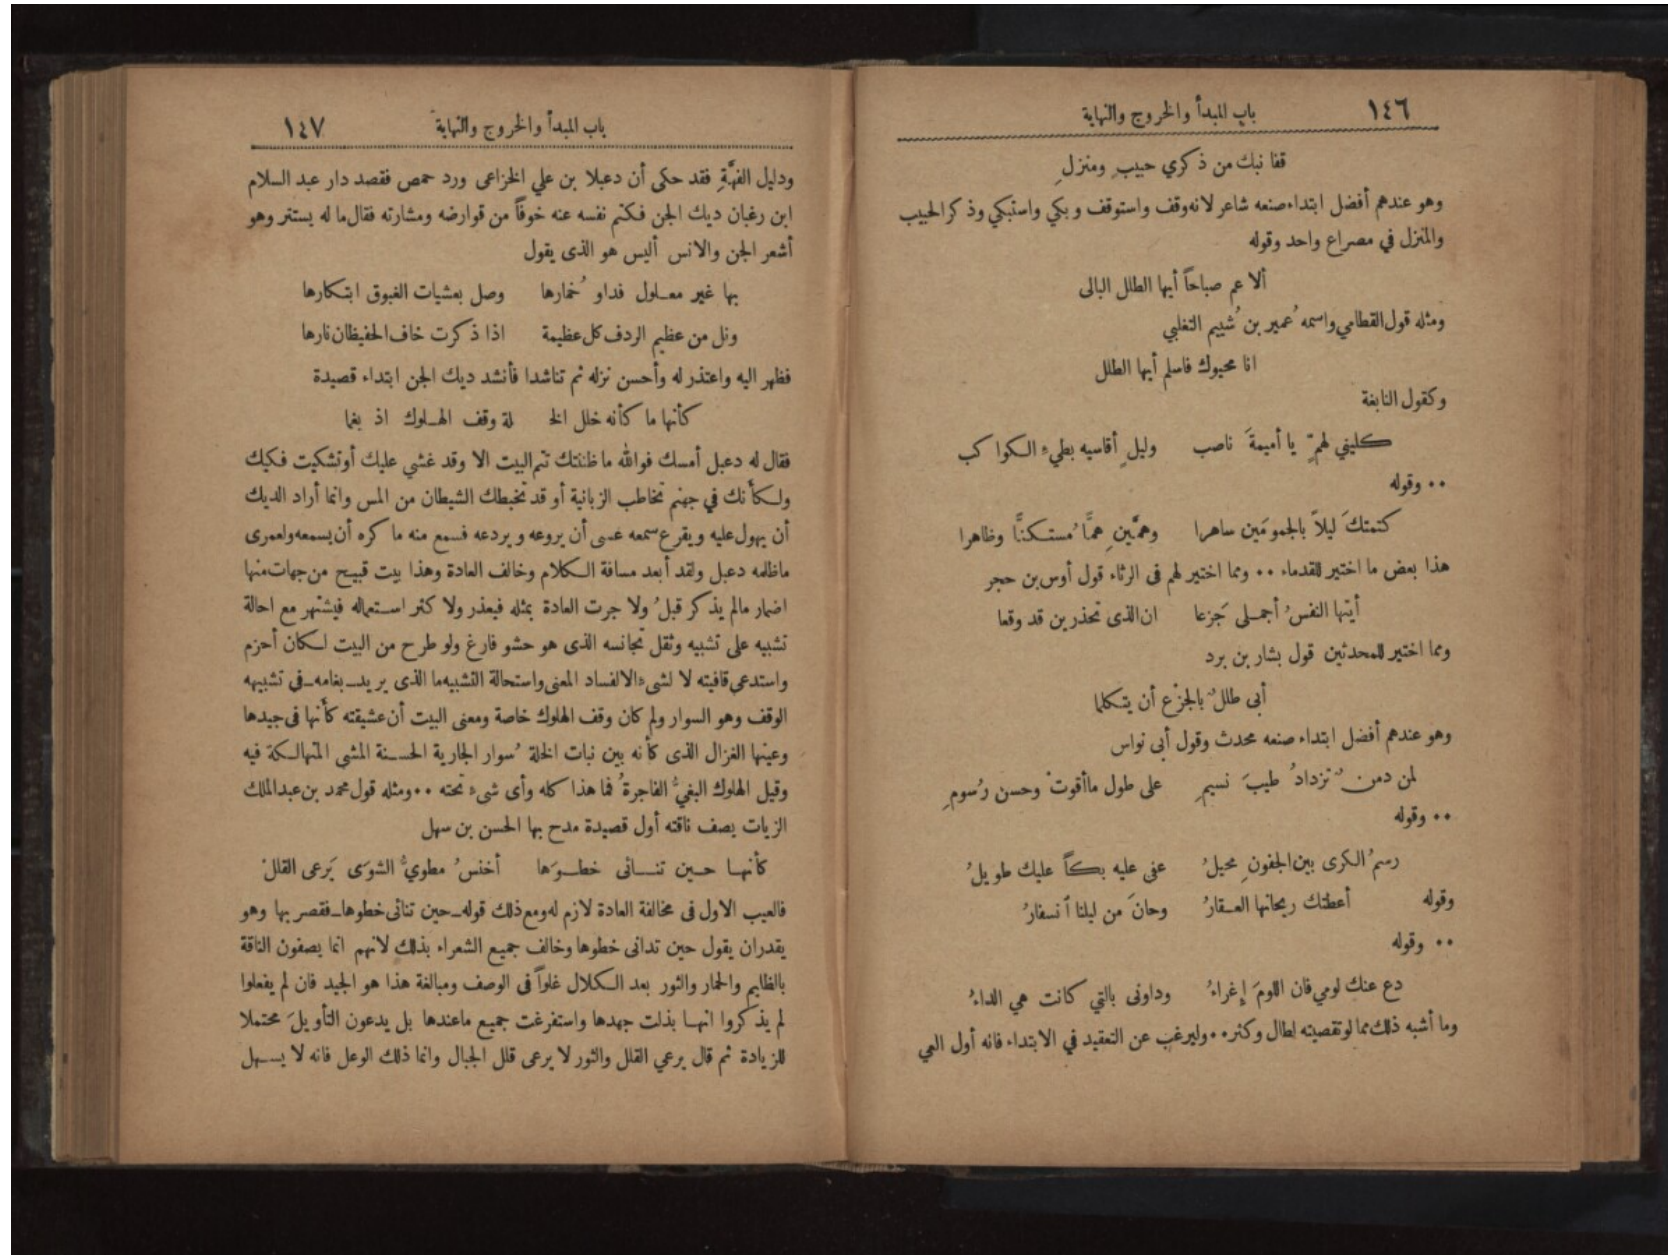 ١٤٦ باب المبدأ والخروج والنهاية
قفا نبك من ذكري حبيبٍ ومنزلِ
وهو عندهم أفضل ابتداء صنعه شاعر لانه وقف واستوقف وبكي واستبكي وذكر الحبيب
والمنزل في مصراع واحد وقوله
ألا عم صباحاً أيها الطلل البالى
ومثله قول القطامي واسمه عُمير بن شُييم التغلبي
انا محيوك فاسلم أيها الطلل
وكقول النابغة
كليني لهمٍّ يا أميمةَ ناصب وليلٍ أقاسيه بطيءِ الكواكب
٠٠ وقوله
كتمتكَ ليلاً بالجمومَين ساهرا وهمَّين همًّا مُستكنًّا وظاهرا
هذا بعض ما اختير للقدماء ٠٠ ومما اختير لهم فى الرثاء قول أوس بن حجر
أيتها النفسُ أجملى جَزعا ان الذى تحذرين قد وقعا
ومما اختير للمحدثين قول بشار بن برد
أبى طللٌ بالجزْع أن يتكلما
وهو عندهم أفضل ابتداء صنعه محدث وقول أبى نواس
لمن دمنٌ تزدادُ طيبَ نسيمِ على طول ماأقوتْ وحسن رُسومِ
٠٠ وقوله
رسمُ الكرى بين الجفونِ محيلُ عفى عليه بكاً عليك طويلُ
وقوله أعطتك ريحانها العقارُ وحانَ من ليلنا ٱنسفارُ
٠٠ وقوله
دع عنك لومي فان اللومَ إغراءُ وداونى بالتي كانت هي الداءُ
وما أشبه ذلك مما لو تقصيته لطال وكثر ٠٠ وليرغب عن التعقيد في الابتداء فانه أول العي
باب المبدأ والخروج والنهاية ١٤٧
ودليل الفهَّةِ فقد حكى أن دعبلا بن علي الخزاعى ورد حمص فقصد دار عبد السلام
ابن رغبان ديك الجن فكتم نفسه عنه خوفاً من قوارضه ومشارته فقال ما له يستتر وهو
أشعر الجن والانس أليس هو الذى يقول
بها غير معلول فداو خُمارها وصل بعشيات الغبوق ابتكارها
ونل من عظيم الردف كل عظيمة اذا ذكرت خاف الحفيظان نارها
فظهر اليه واعتذر له وأحسن نزله ثم تناشدا فأنشد ديك الجن ابتداء قصيدة
كأنها ما كأنه خلل الخ لة وقف الهلوك اذ بغما
فقال له دعبل أمسك فوالله ماظننتك تتم البيت الا وقد غشي عليك أوتشكيت فكيك
ولكأنك في جهنم تخاطب الزبانية أو قد تخبطك الشيطان من المس وانما أراد الديك
أن يهول عليه ويقرع سمعه عسى أن يروعه ويردعه فسمع منه ما كره أن يسمعه ولعمرى
ماظلمه دعبل ولقد أبعد مسافة الكلام وخالف العادة وهذا بيت قبيح من جهات منها
اضمار مالم يذكر قبلُ ولا جرت العادة بمثله فيعذر ولا كثر استعماله فيشتهر مع احالة
تشبيه على تشبيه وثقل تجانسه الذى هو حشو فارغ ولو طرح من البيت لكان أحزم
واستدعى قافيته لا لشىء الالفساد المعنى واستحالة التشبيه ما الذى يريد ـ بغامه ـ في تشبيهه
الوقف وهو السوار ولم كان وقف الهلوك خاصة ومعنى البيت أن عشيقته كأنها فى جيدها
وعينها الغزال الذى كأنه بين نبات الخلة سُوار الجارية الحسنة المشى المتهالكة فيه
وقيل الهلوك البغيُّ الفاجرةُ فما هذا كله وأى شىء تحته ٠٠ ومثله قول محمد بن عبد الملك
الزيات يصف ناقته أول قصيدة مدح بها الحسن بن سهل
كأنها حين تنائى خطوَها أخنسُ مطويُّ الشوَى يَرعى القللْ
فالعيب الاول فى مخالفة العادة لازم له ومع ذلك قوله ـ حين تنائى خطوها ـ فقصر بها وهو
يقدران يقول حين تدانى خطوها وخالف جميع الشعراء بذلك لانهم انما يصفون الناقة
بالظليم والحمار والثور بعد الكلال غلواً فى الوصف ومبالغة هذا هو الجيد فان لم يفعلوا
لم يذكروا انها بذلت جهدها واستفرغت جميع ماعندها بل يدعون التأويلَ محتملا
للزيادة ثم قال يرعي القلل والثور لا يرعى قلل الجبال وانما ذلك الوعل فانه لا يسهل